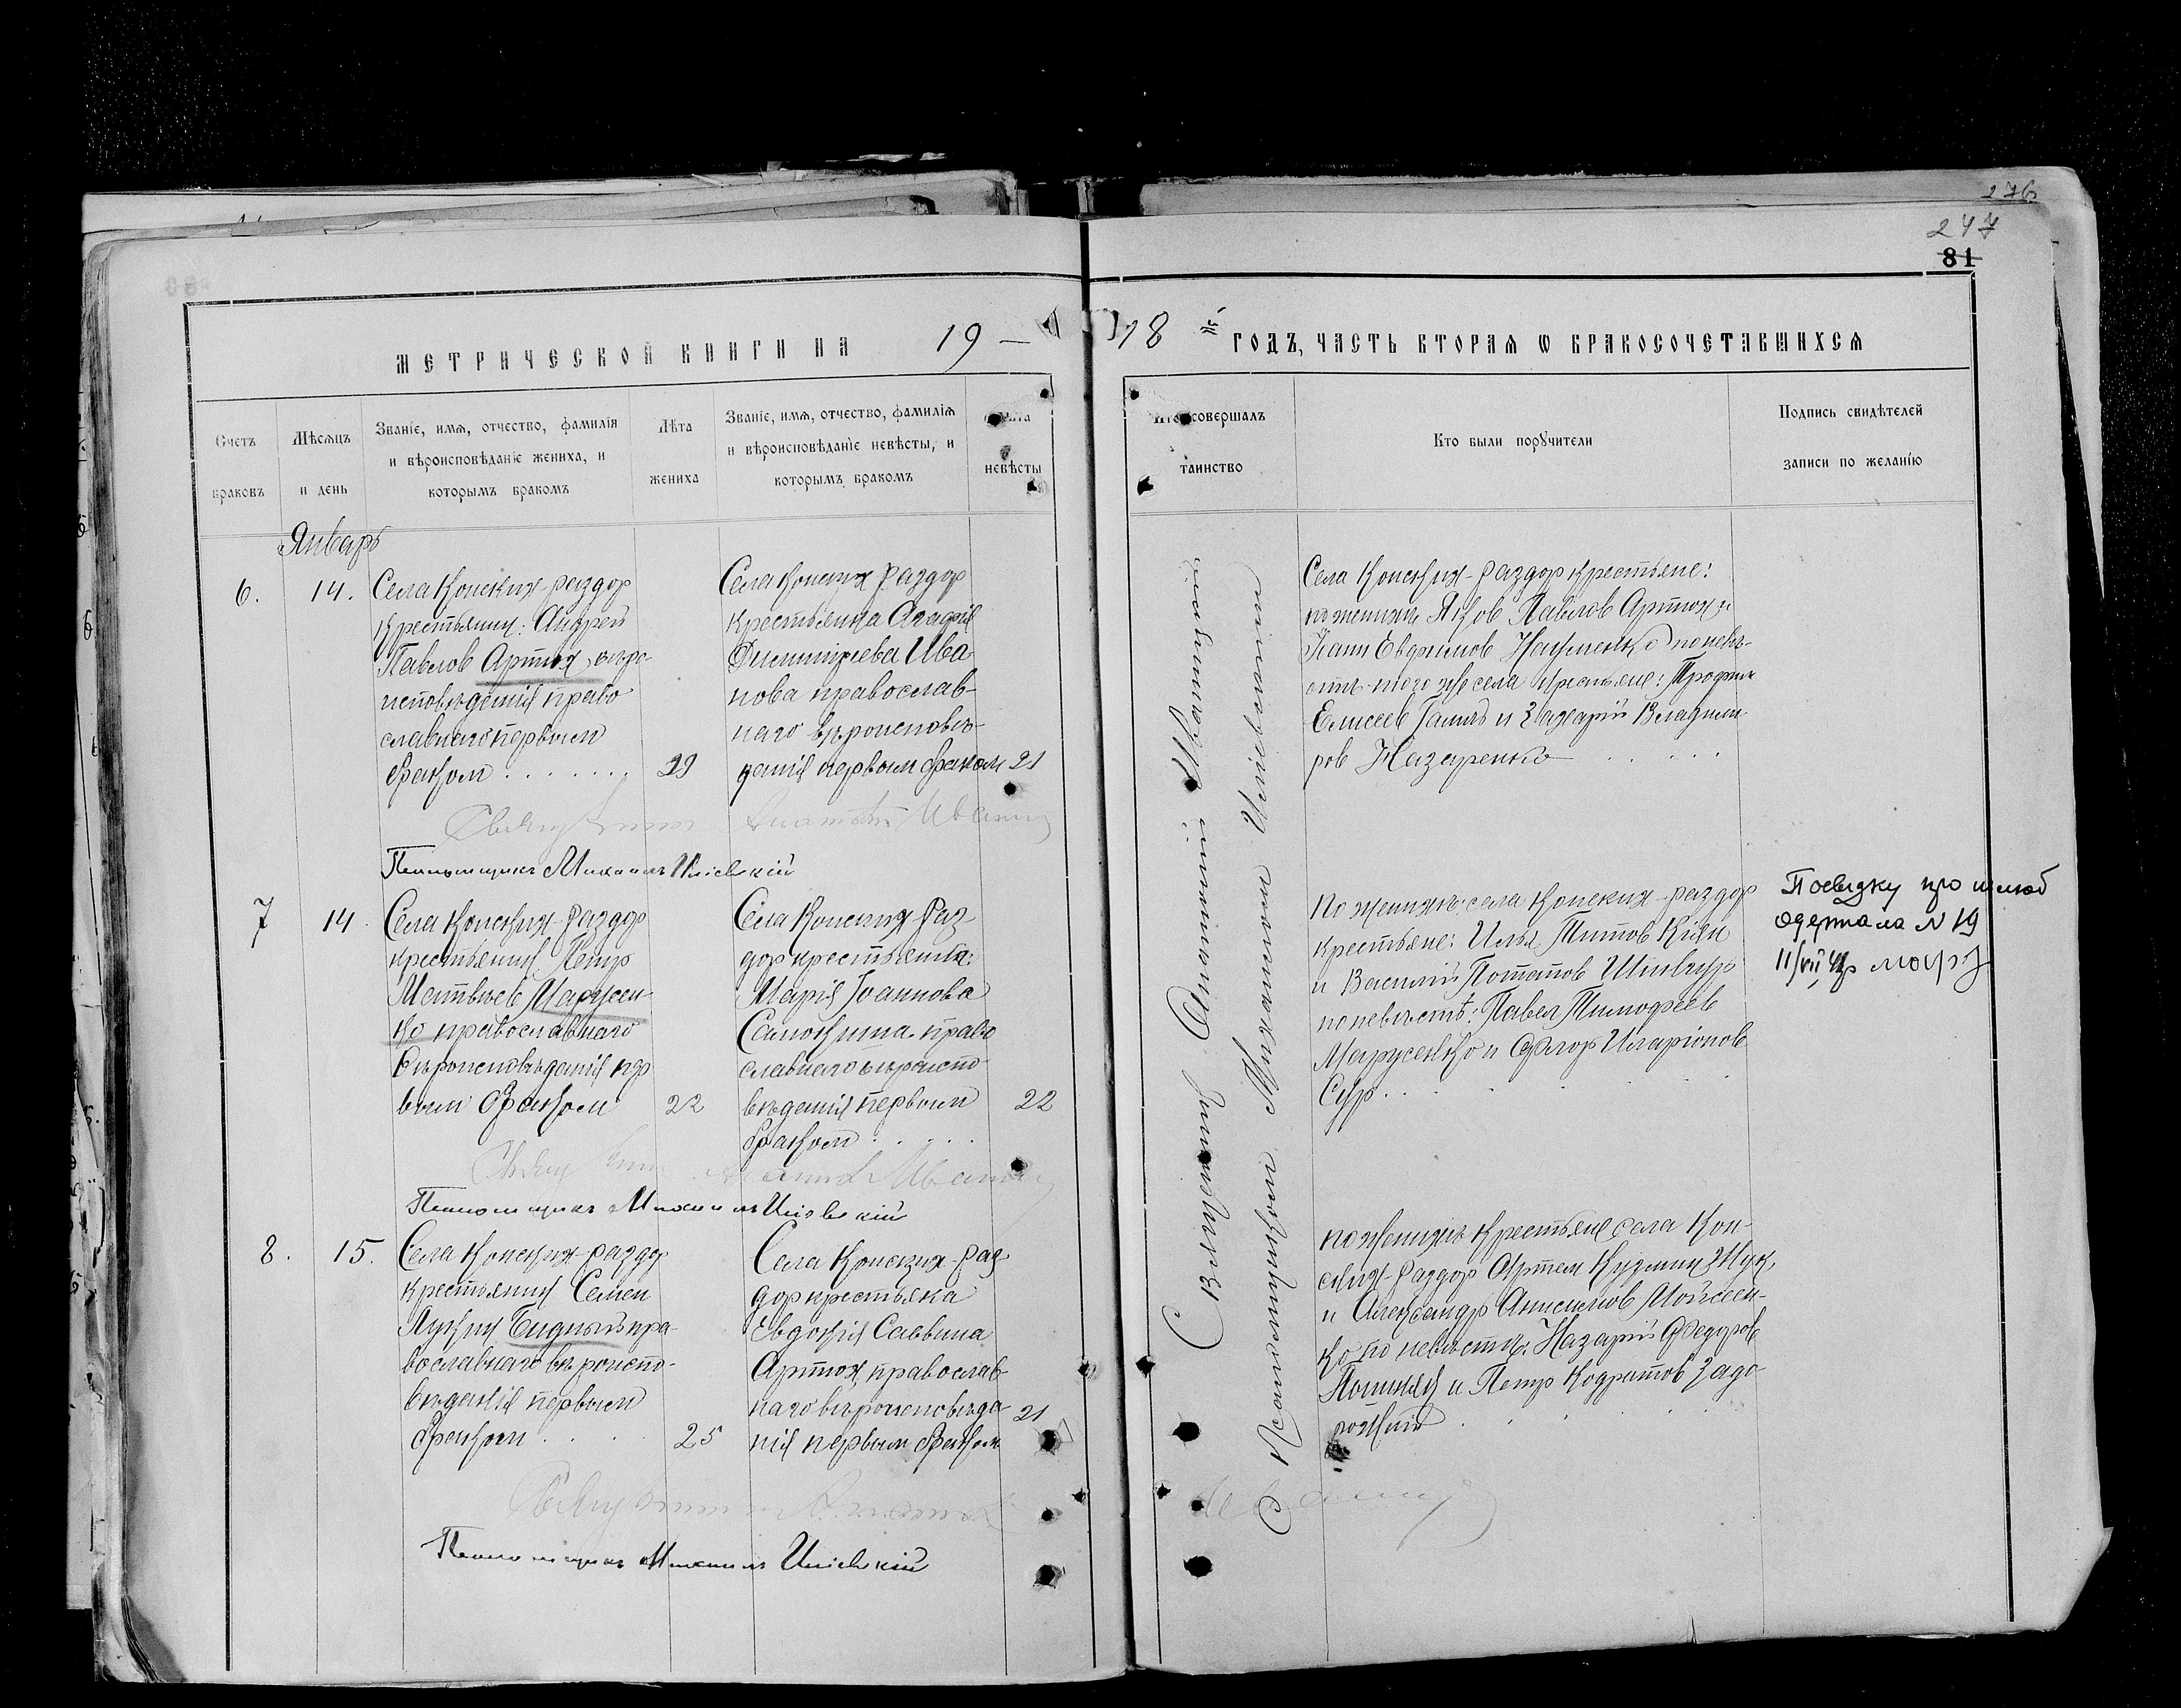 276
247
81
МЕТРИЧЕСКОЙ КНИГИ НА 19 —
18 й ГОДЪ, ЧАСТЬ ВТОРАЯ Ѡ БРАКОСОЧЕТАВШИХСЯ
Счетъ браковъ
Мѣсяцъ и день
Званіе, имя, отчество, фамилія
и вѣроисповѣданіе жениха, и
которымъ бракомъ
Лѣта жениха
Званіе, имя, отчество, фамилія
и вѣроисповѣданіе невѣсты, и
которымъ бракомъ
Лѣта невѣсты
Кто совершалъ таинство
Кто были порꙋчители
Подпись свидѣтелей
записи по желанію
Январь
6.
14.
Села Конских-раздор
крестьянин: Андрей
Павлов Артюх, веро-
исповѣданія право
славнаго первым
браком . . . . . . .
29
Села Конских раздор
крестьянка Агафія
Димитріева Ива
нова православ-
наго вѣроисповѣ-
данія первым браком
21
Села Конских-раздор крестьяне:
по женихѣ Яков Павлов Артюх и
Іоанн Евфимов Науменко по невѣ-
стѣ того же села крестьяне: Трофим
Елисеев и Захарій Владими-
ров Назаренко
Псаломщикъ Михаилъ
7
14.
Села Конских-раздор
крестьянин Петр
Матвѣев Марусен-
ко православнаго
вѣроисповѣданія пер
вым браком
22
Села Конских Раз-
дор крестьянка:
Марія Іоаннова
Самохина право
славнаго вѣроиспо-
вѣданія первым
браком . . . . .
22
По женихѣ: села Конских-раздор
крестьяне: Илья Титов Кіян
и Василій Потапов
по невѣстѣ: Павел Тимофеев
Марусенко и Флор Иларіонов
Сур. . .
Посвідку про шлюб
одержала N 19
Псаломщикъ Михаилъ
8.
15.
Села Конских-раздор
крестьянин Семен
Лукин Бидный пра-
вославнаго вѣроиспо-
вѣданія первым
браком . . . .
25
Села Конских-раз
дор крестьянка
Евдокія Саввина
Артюх, православ-
наго вѣроисповѣда-
нія первым браком
21
по женихѣ крестьяне села Кон-
ских-раздор Артем Кузмин Жук,
и Александр Анисимов Мойсеен-
ко по невѣстѣ: Назарій Федоров
и Петр Кодратов Задо
рожний
Псаломщикъ Михаилъ
Священник
с Псаломщиком Михаилом